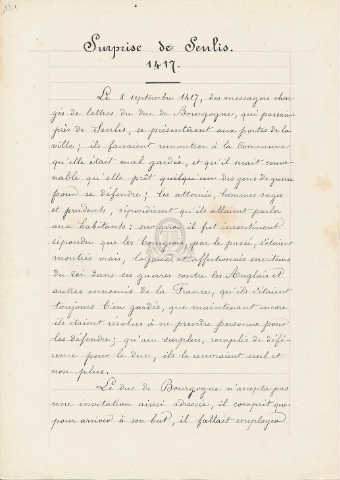 Surprise de Senlis.
1417.
Le 8 septembre 1417, des messagers char-
gés de lettres du duc de Bourgogne, qui passait
près de Senlis, se présentèrent aux portes de la
ville ; ils faisaient remontrer à la Commune
qu'elle était mal gardée, et qu'il serait conve-
nable qu'elle prît quelqu'un des gens de guerre
pour se défendre ; les attournés, hommes sages
et prudents, répondirent qu'ils allaient parler
aux habitants ; sur quoi il fut
répondu que les bourgeois, par le passé, s'étaient
montrés vrais, loyaux et affectionnés serviteurs
du roi dans ses guerres contre les Anglais et
autres ennemis de la France, qu'ils s'étaient
toujours bien gardés, que maintenant encore
ils étaient résolus à ne prendre personne pour
les défendre ; qu'au surplus, remplis de défé-
rence pour le duc, ils le recevraient seul et
non plus.
Le duc de Bourgogne n'accepta pas
une invitation ainsi adressée, il comprit que
pour arriver à son but, il fallait employer